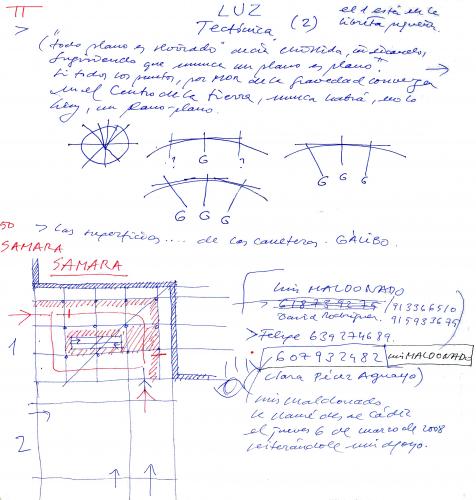 II
LUZ
el 1 está en la
libreta pequeña.
Tectónica (2)
>
("todo plano es
que nunca un plano es plano"
Si todos los puntos, por mor de la gravedad convergen
en el Centro de la Tierra, nunca habrá, no lo
hay, un plano-plano.
? G ?
G G G
G G G
50 > Las superficies .... de las carreteras. GÁLIBO.
SAMARA
SAMARA
1
2
Luis MALDONADO
> 618739275 / 913366510
David Rodríguez. 915933675
> Felipe 639274689.
607932482 Luis MALDONADO
(Clara Pérez Aguayo)
Luis Maldonado
le llamé desde Cádiz
el jueves 6 de marzo de 2008
reiterándole mi apoyo.